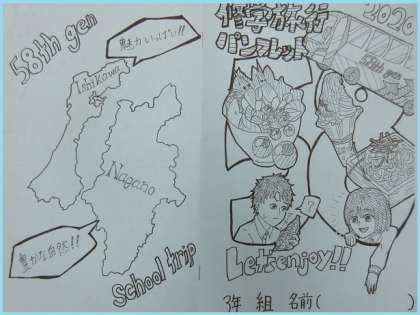 58th gen
魅力いっぱい!!
Ishikawa
Nagano
豊かな自然!!
School trip
修学旅行
パンフレット
2020
58th gen
?
Let's enjoy!!
3年 組 名前( )